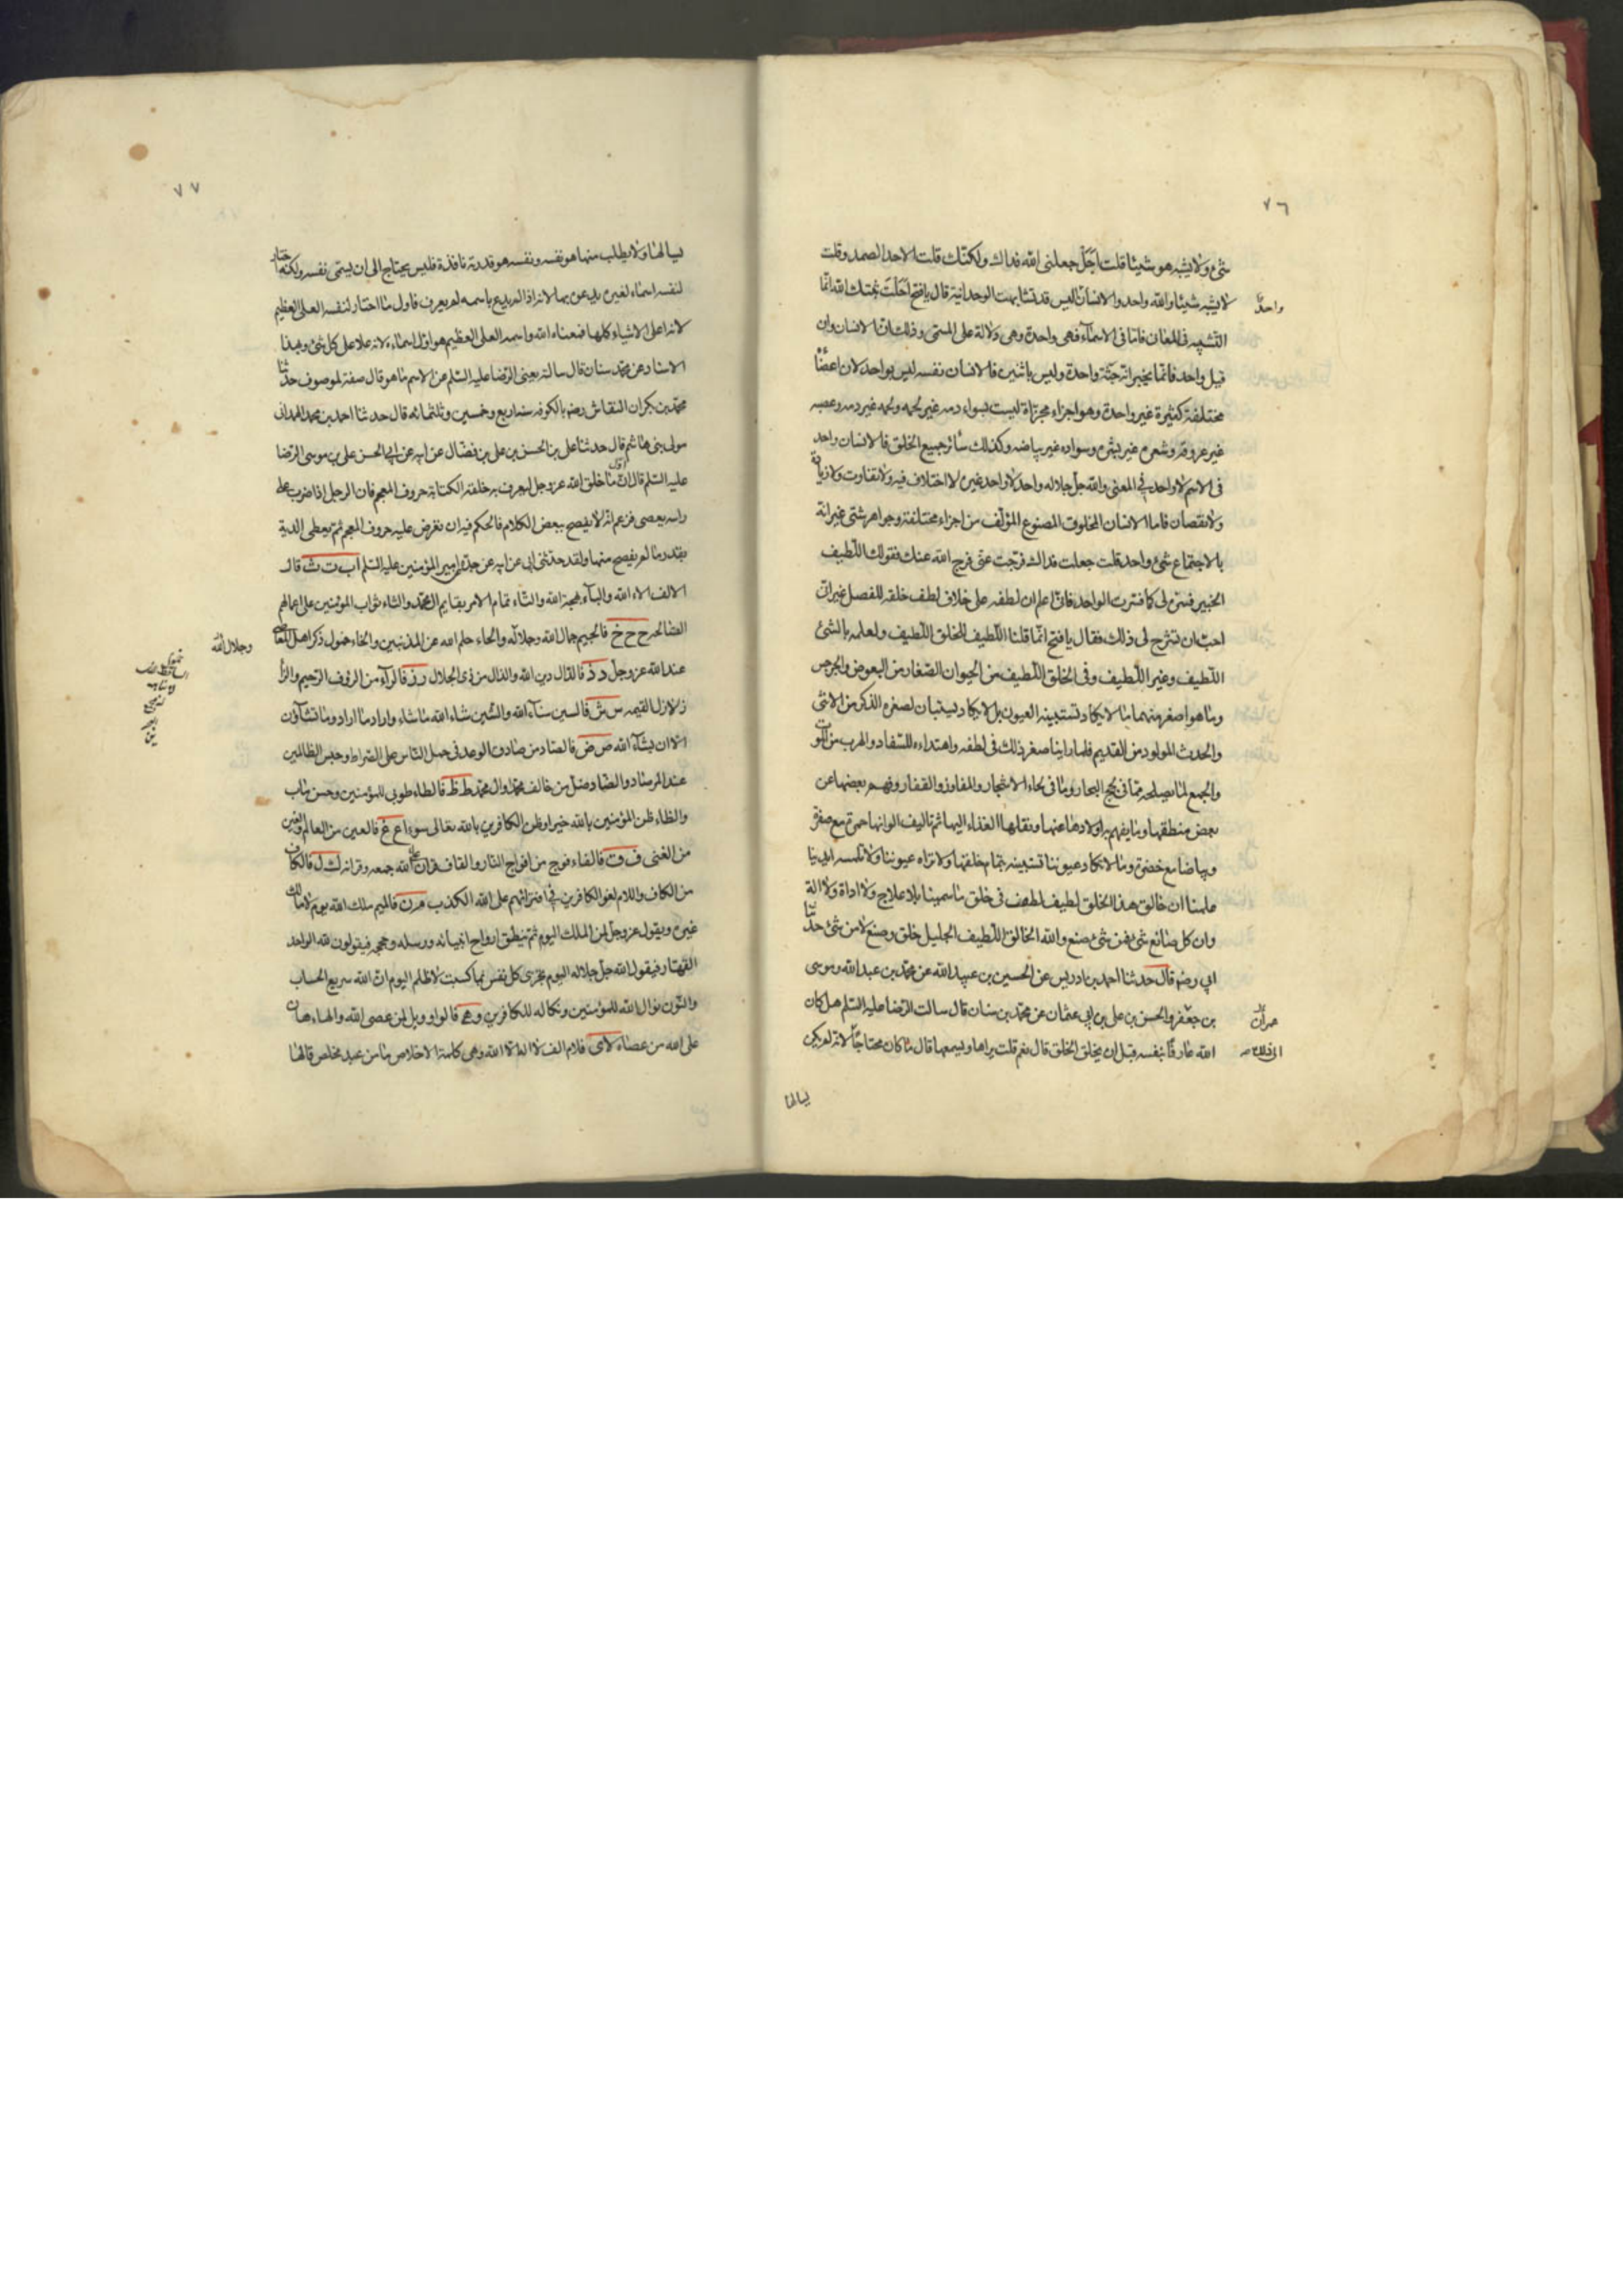 ٧٦
شئ ولا يشبه هو شيئا قلت اجل جعلنى الله فداك ولكنك قلت الاحد الصمد وقلت
لا يشبه شيئا والله واحد والانسان واحد اليس قد تشابهت الوحدانية قال يا فتح احلت ثبتك الله انما
التشبيه فى المعان فاما فى الاسماء فهى واحدة وهى دلالة على المسمى وذلك ان الانسان وان
قيل واحد فانما يخبر انه جثة واحدة وليس باثنين فالانسان نفسه ليس بواحد لان اعضاؤه
مختلفة كثيرة غير واحدة وهو اجزاء مجزاة ليست بسواء دمه غير لحمه ولحمه غير دمه وعصبه
غير عروقه وشعره غير بشره وسواده غير بياضه وكذلك سائر جميع الخلق فالانسان واحد
فى الاسم لا واحد فى المعنى والله جل جلاله واحد لا واحد غيره لا اختلاف فيه ولا تفاوت ولا زيادة
ولا نقصان فاما الانسان المخلوق المصنوع المؤلف من اجزاء مختلفة وجواهر شتى غير انه
بالاجتماع شئ واحد قلت جعلت فداك فرجت عنى فرج الله عنك فقولك اللطيف
الخبير فسره لى كما فسرت الواحد فانى اعلم ان لطفه على خلاف لطف خلقه للفصل غير انى
احب ان تشرح لى ذلك فقال يا فتح انما قلنا اللطيف للخلق اللطيف ولعلمه بالشئ
اللطيف وغير اللطيف وفى الخلق اللطيف من الحيوان الصغار من البعوض والجرجس
وما هو اصغر منهما ما لا يكاد تستبينه العيون بل لا يكاد يستبان لصغره الذكر من الانثى
والحدث المولود من القديم فلما راينا صغر ذلك فى لطفه واهتداءه للسفاد والهرب من الموت
والجمع لما يصلحه مما فى لجج البحار وما فى لحاء الاشجار والمفاوز والقفار وفهم بعضها عن
بعض منطقها وما يفهم به اولادها عنها ونقلها الغذاء اليها ثم تاليف الوانها حمرة مع صفرة
وبياضا مع خضرة وما لا تكاد عيوننا تستبينه بتمام خلقها ولا تراه عيوننا ولا تلمسه ايدينا
علمنا ان خالق هذا الخلق لطيف لطف فى خلق ما سمينا بلا علاج ولا اداة ولا الة
وان كل صانع شئ فمن شئ صنع والله الخالق اللطيف الجليل خلق وصنع لا من شئ حدثنا
ابى رضه قال حدثنا احمد بن ادريس عن الحسين بن عبيد الله عن محمد بن عبد الله وموسى
بن جعفر والحسن بن على بن ابى عثمان عن محمد بن سنان قال سالت الرضا عليه السلم هل كان
الله عارفا بنفسه قبل ان يخلق الخلق قال نعم قلت يراها ويسمعها قال ما كان محتاجا الى ذلك لانه لم يكن
يسالها
٧٧
يسالها ولا يطلب منها هو نفسه ونفسه هو قدرته نافذة فليس يحتاج الى ان يسمى نفسه ولكنه اختار
لنفسه اسماء لغيره يدعوه بها لانه اذا لم يدع باسمه لم يعرف فاول ما اختار لنفسه العلى العظيم
لانه اعلى الاشياء كلها فمعناه الله واسمه العلى العظيم هو اول اسماءه لانه علا على كل شئ وبهذا
الاسناد عن محمد سنان قال سالته يعنى الرضا عليه السلم عن الاسم ما هو قال صفة لموصوف حدثنا
محمد بن بكران النقاش رضه بالكوفه سنه اربع وخمسين وثلثمائه قال حدثنا احمد بن محمد الهمدانى
مولى بنى هاشم قال حدثنا على بن الحسن بن على بن فضال عن ابيه عن ابى الحسن على بن موسى الرضا
عليه السلم قال ان اول ما خلق الله عز وجل ليعرف به خلقه الكتابة حروف المعجم فان الرجل اذا ضرب على
راسه بعصى فزعم انه لا يفصح ببعض الكلام فالحكم فيه ان تعرض عليه حروف المعجم ثم يعطى الدية
بقدر ما لم يفصح منها ولقد حدثنى ابى عن ابيه عن جده عن امير المؤمنين عليه السلم ا ب ت ث قال
الالف الاء الله والباء بهجة الله والتاء تمام الامر بقايم ال محمد والثاء ثواب المؤمنين على اعمالهم
الصالحه ج ح خ فالجيم جمال الله وجلاله والحاء حلم الله عن المذنبين والخاء خمول ذكر اهل المعاصى
وجلال الله
عند الله عز وجل د ذ فالدال دين الله والذال من ذى الجلال ر ز فالراء من الرؤف الرحيم والزا
زلازل القيمه س ش فالسين سناء الله والشين شاء الله ما شاء واراد ما اراد وما تشاؤن
الا ان يشاء الله ص ض فالصاد من صادق الوعد فى حمل الناس على الصراط وحبس الظالمين
عند المرصاد والضاد ضل من خالف محمد وال محمد ط ظ فالطاء طوبى للمؤمنين وحسن ماب
والظاء ظن المؤمنين بالله خيرا وظن الكافرين بالله تعالى سوءا ع غ فالعين من العالم والغين
من الغنى ف ق فالفاء فوج من افواج النار والقاف قران على الله جمعه وقرانه ك ل فالكاف
من الكاف واللام لغو الكافرين فى افترائهم على الله الكذب م ن فالميم ملك الله يوم لا مالك
غيره ويقول عز وجل لمن الملك اليوم ثم ينطق ارواح انبيائه ورسله وحججه فيقولون لله الواحد
القهار فيقول الله جل جلاله اليوم تجزى كل نفس بما كسبت لا ظلم اليوم ان الله سريع الحساب
والنون نوال الله للمؤمنين ونكاله للكافرين و ه قالواو ويل لمن عصى الله والهاء هان
على الله من عصاه لا ى فلام الف لا اله الا الله وهى كلمة الاخلاص ما من عبد مخلص قالها